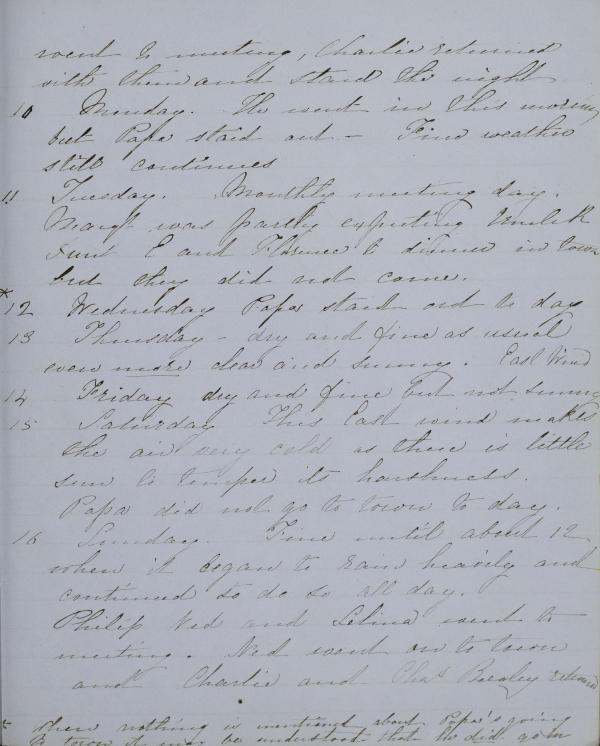 went to meeting, Charlie returned
with them and staid the night
10 Monday. He went in this morning
but Papa staid out - Fine weather
still continues
11 Tuesday. Monthly meeting day.
Margt was partly expecting Uncle R
Aunt E and Florence to dinner in town
but they did not come.
*12 Wednesday Papa staid out to day
13 Thursday - dry and fine as usual
even more clear and sunny. East Wind
14 Friday dry and fine but not sunny
15 Saturday This East wind makes
the air very cold as there is little
sun to temper its harshness.
Papa did not go to town to day.
16 Sunday. Fine until about 12
when it began to rain heavily and
continued to do so all day.
Philip Ned and Selina went to
meeting. Ned went on to town
and Charlie and Chas Beesley returned
* When nothing is mentioned about Papa's going
to town it may be understood that he did go in